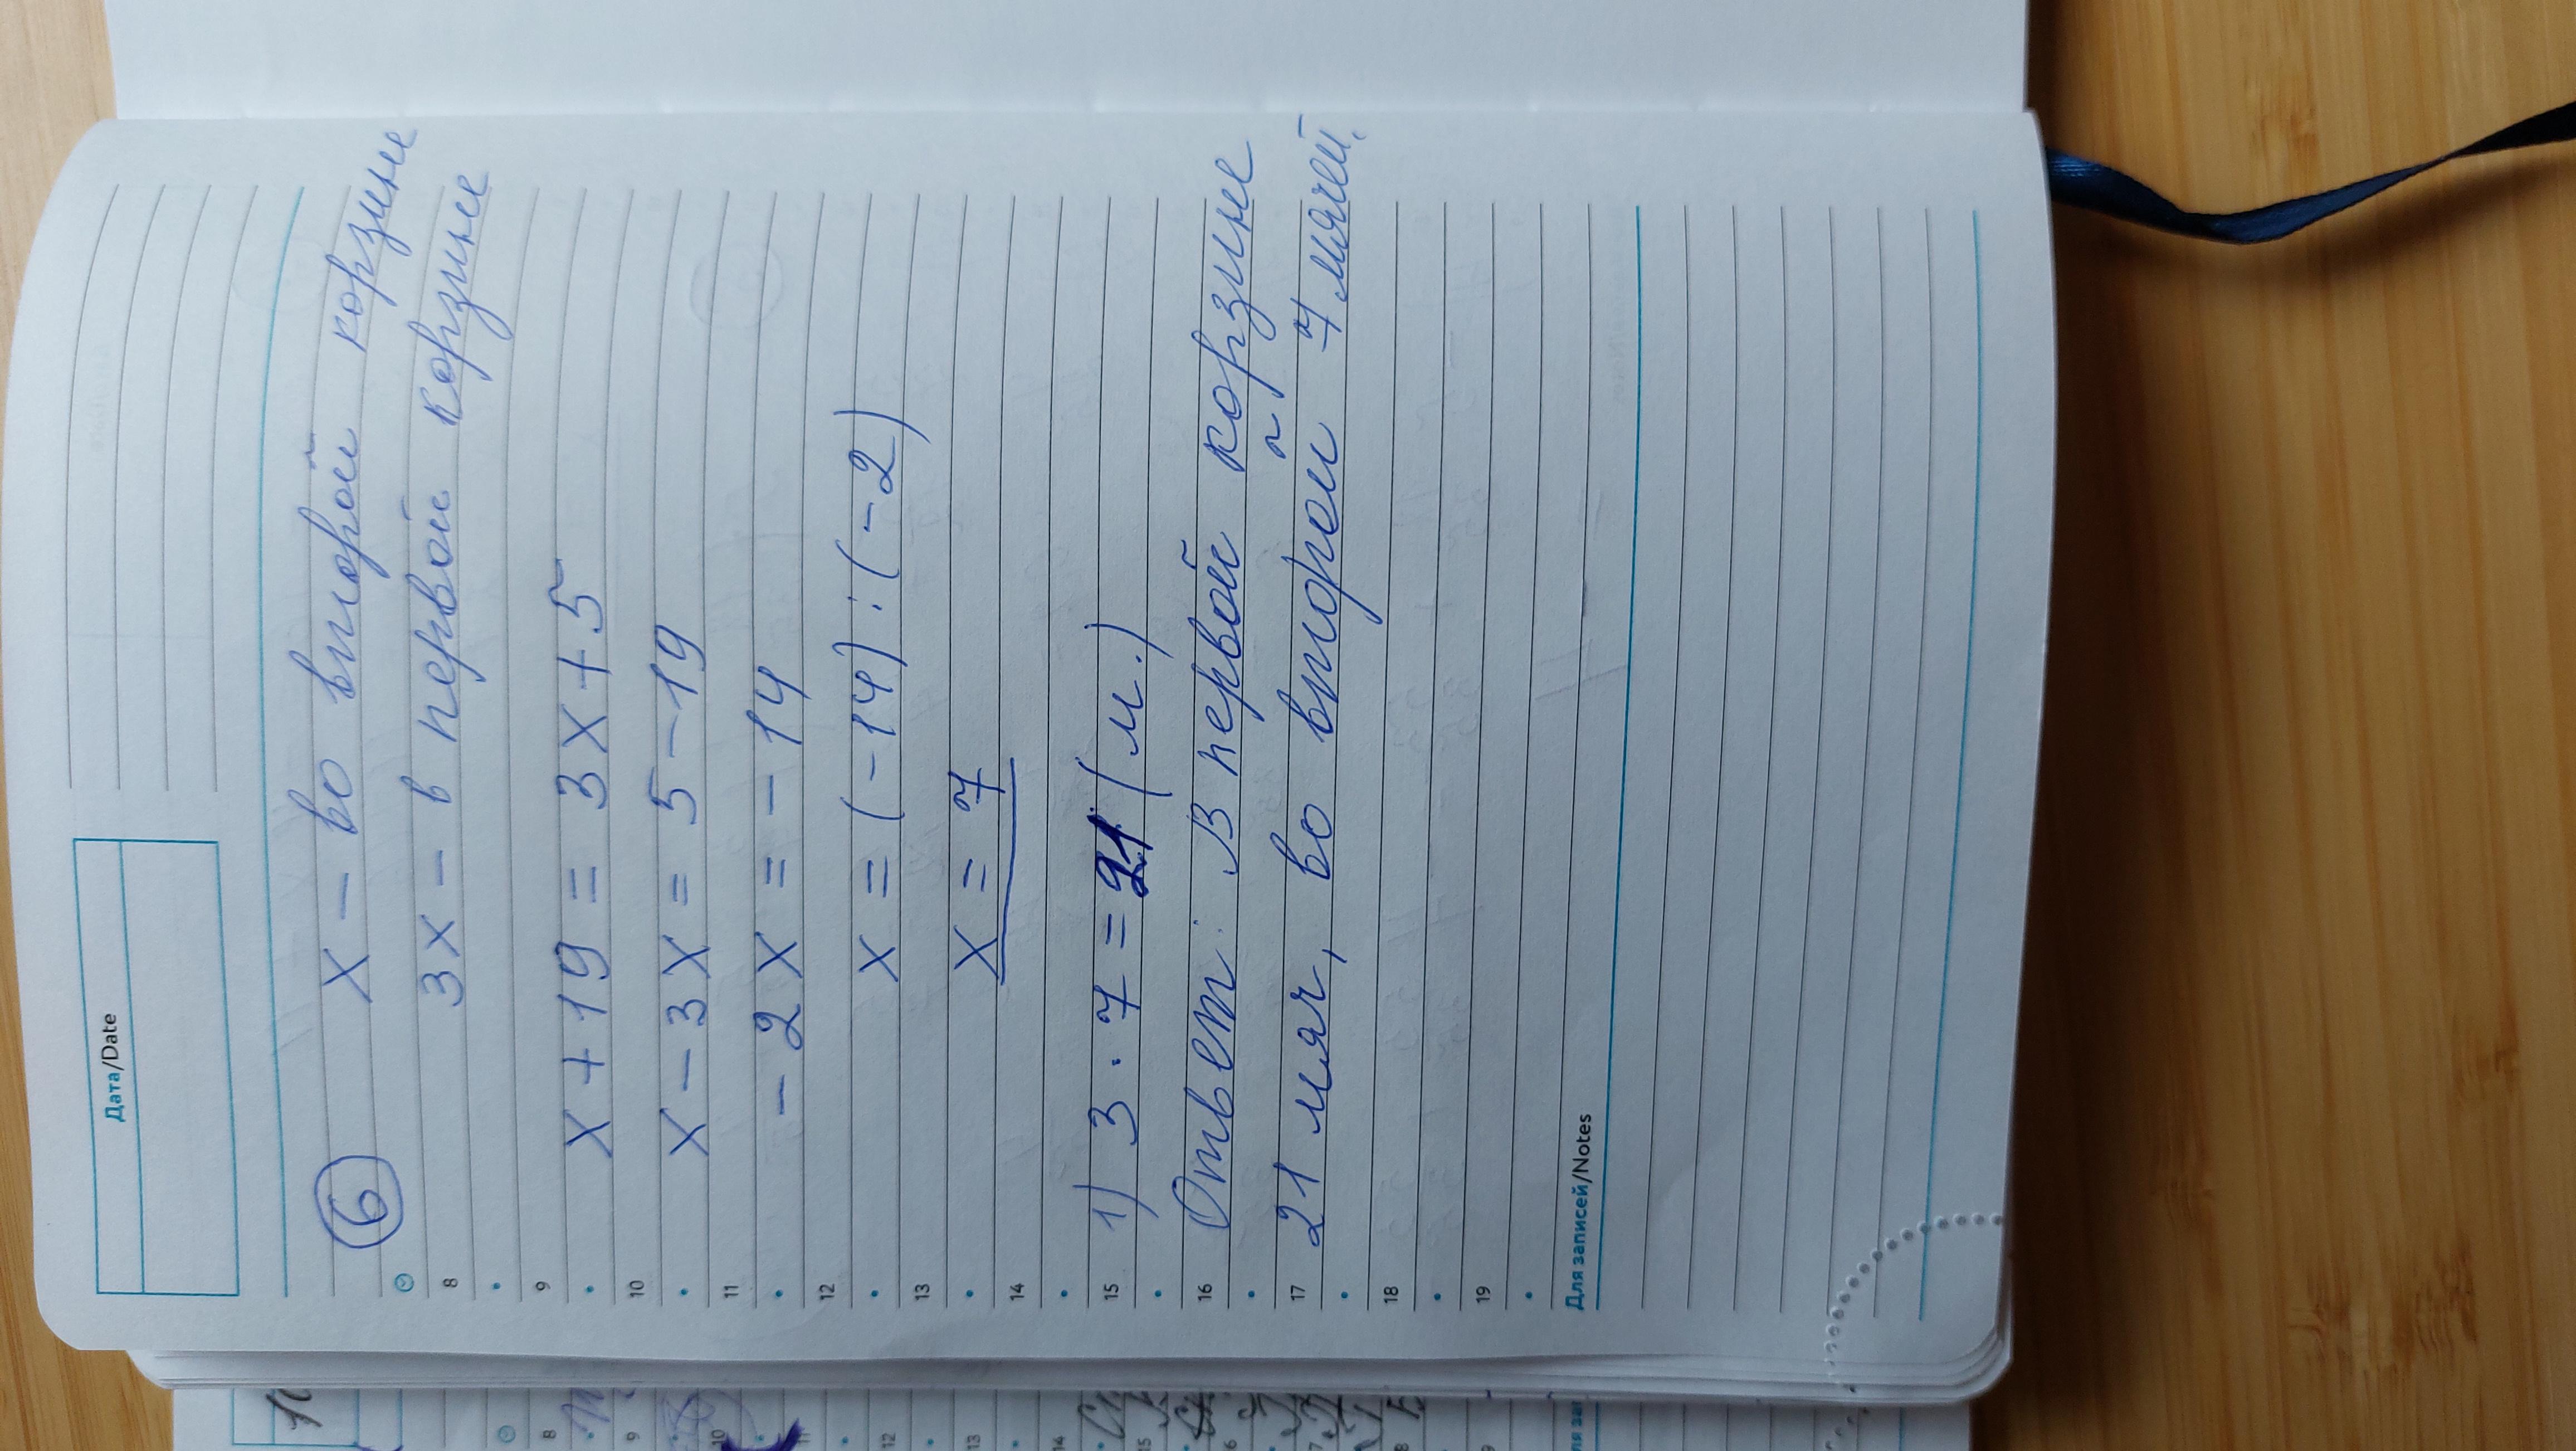 Дата/Date
6
x – во второй корзине
3x – в первой корзине
x + 19 = 3x + 5
x – 3x = 5 – 19
– 2x = – 14
x = (– 14) : (– 2)
x = 7
1) 3 · 7 = 21 (м.)
Ответ: В первой корзине
21 мяч, во второй 7 мячей.
8
9
10
11
12
13
14
15
16
17
18
19
Для записей/Notes
10
8
9
10
11
12
13
14
15